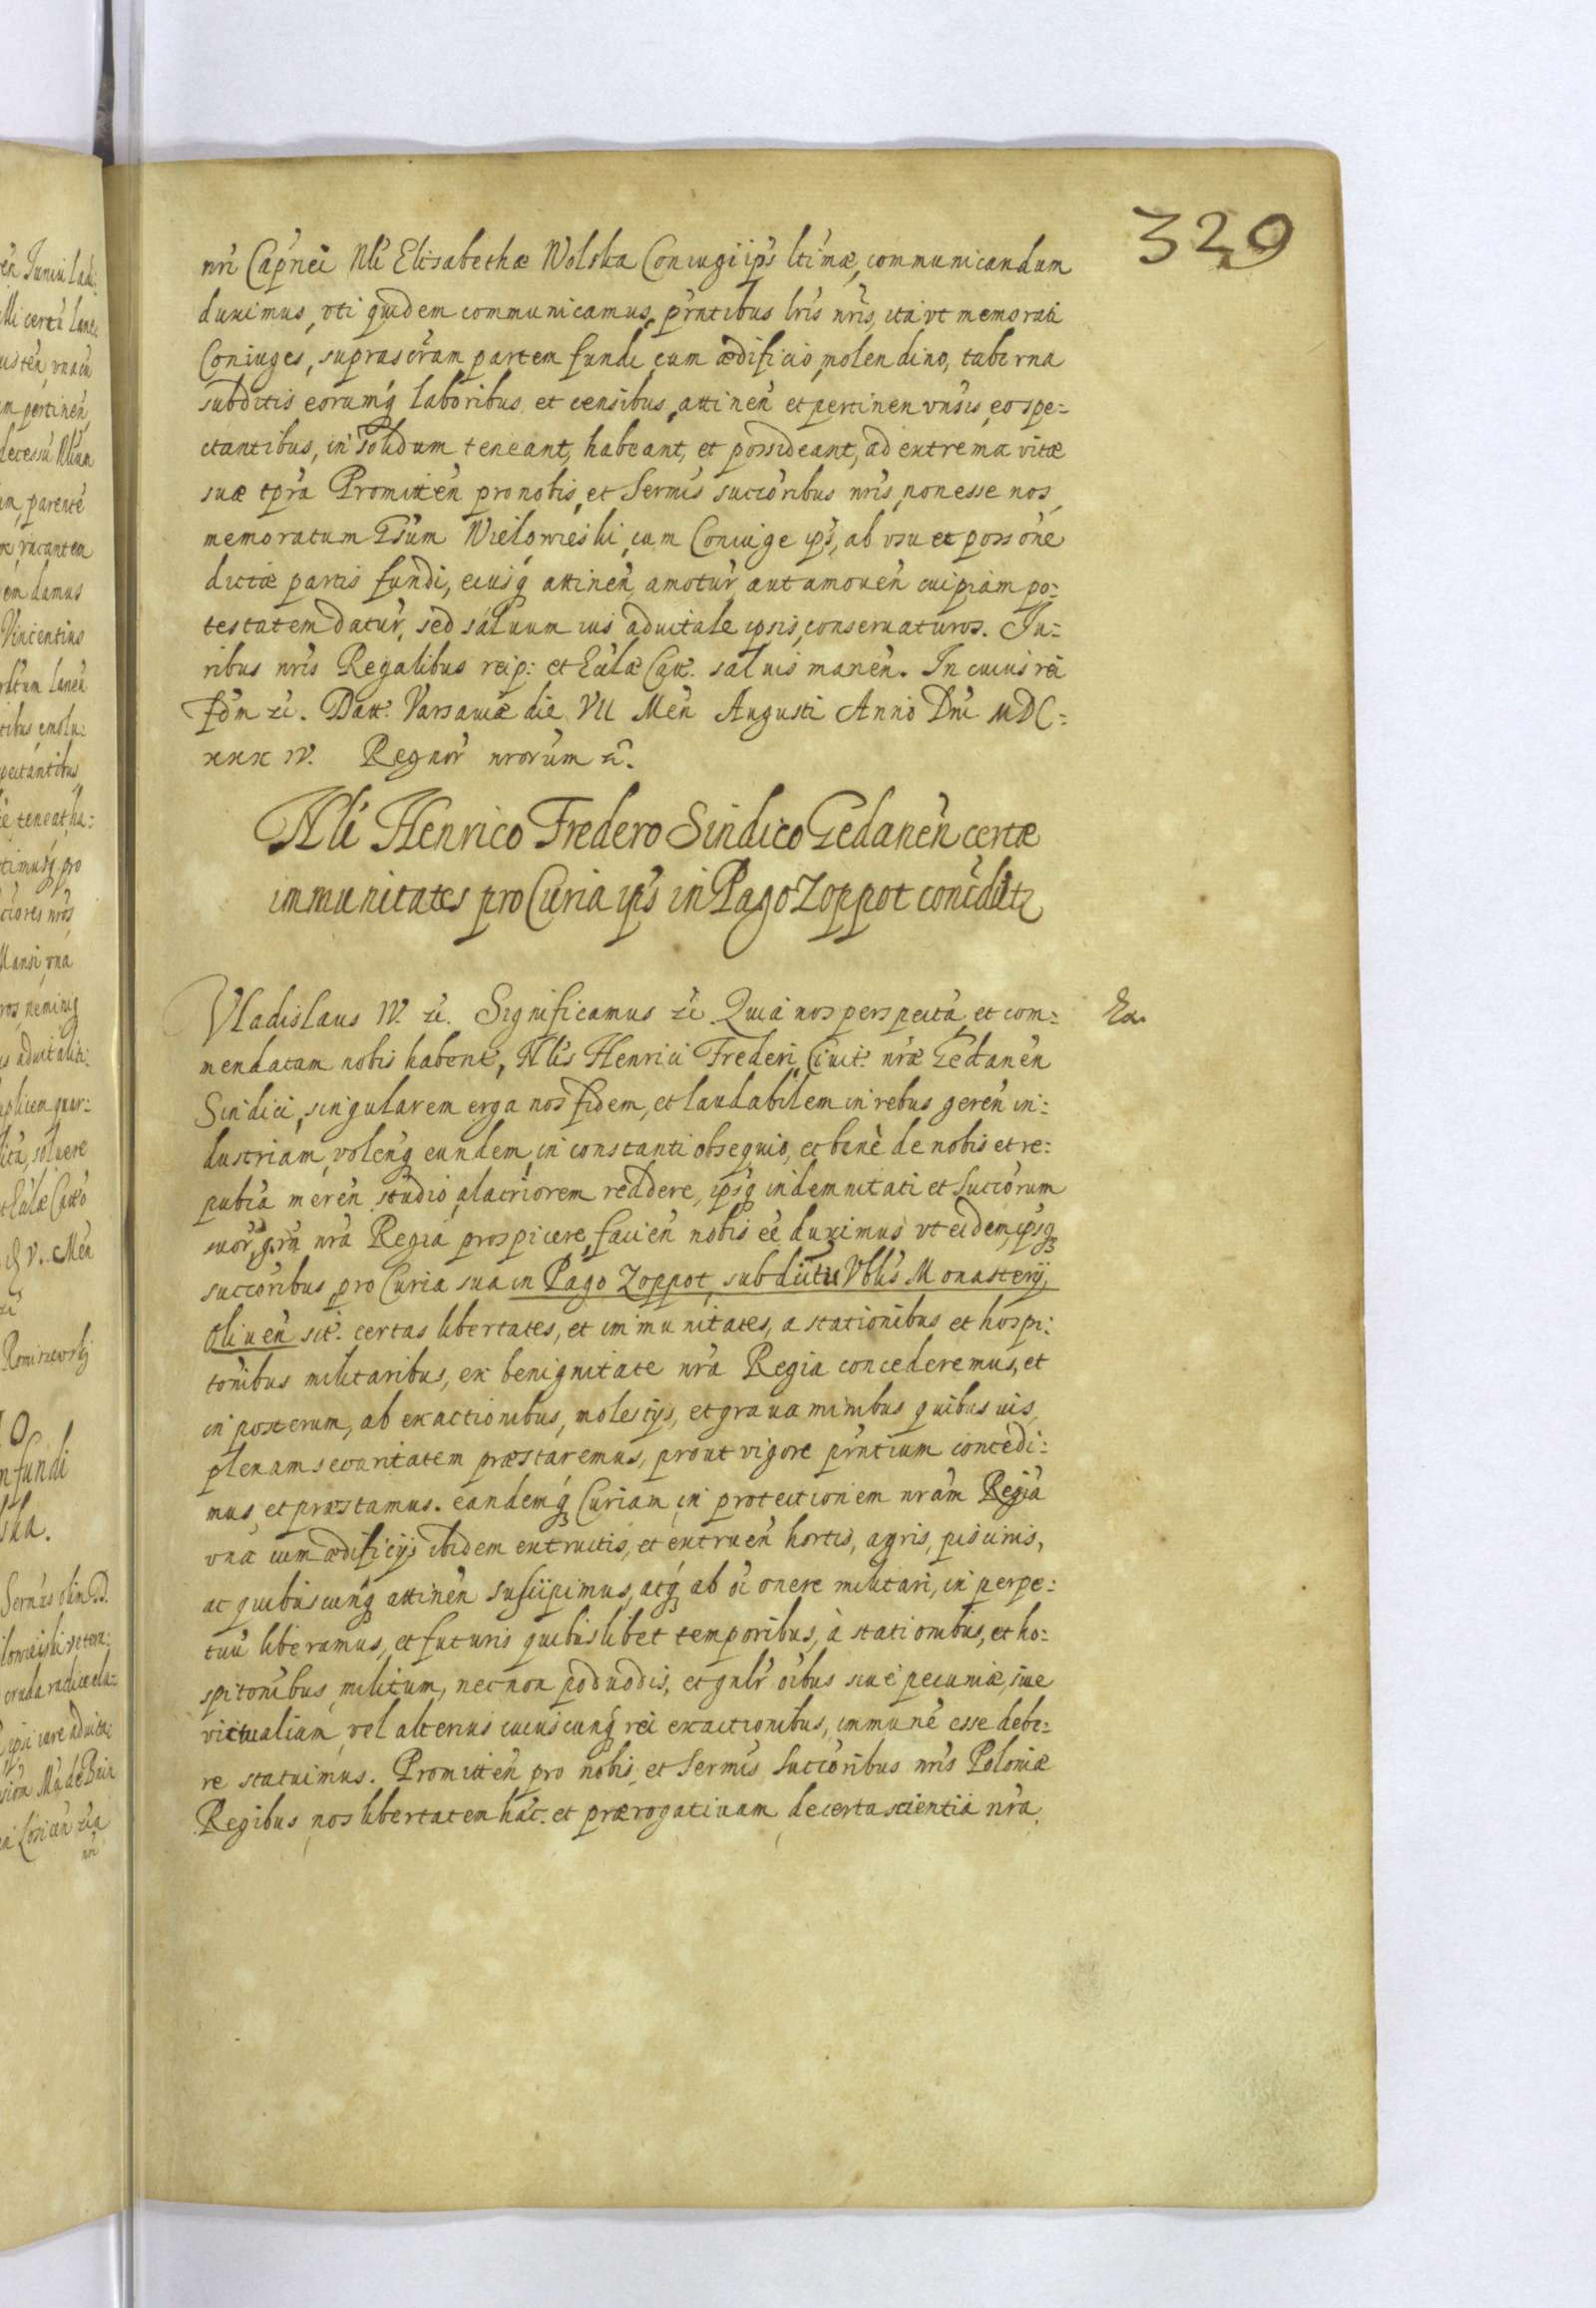 329
nri Capnei Nli Elisabethæ Wolska Coniugi ips ltimæ, communicandum
duximus, vti quidem communicamus, prntibus lris nris, ita vt memorati
Coniuges, suprascram partem fundi, cum ædificio, molendino, taberna
subditis eorumq laboribus et censibus, attinen et pertinen vnsis, eo spe=
ctantibus, in solidum teneant, habeant, et possideant, ad extrema vitæ
suæ tpra Promitten pro nobis, et Sermis succoribus nris, non esse nos
memoratum Gsum Wielowieski, cum Coniuge ips, ab vsu et possone
dictæ partis fundi, eiusq attinen, amotur, aut amouen cuipiam po=
testatem datur, sed saluum ius aduitale ipsis, conseruaturos. Ju=
ribus nris Regalibus reip: et Eulæ Catt. saluis manen. In cuius rei
fdm zc. Datt. Varsauiæ die VII Men Augusti Anno Dni MDC=
xxx IV. Regnor nrorum zc.
Nli Henrico Fredero Sindico Gedanen certæ
immunitates pro Curia ips in Pago Zoppot concedutr
Vladislaus IV. zc. Significamus zc. Quia nos perspecta, et com=
mendatam nobis haben, Nlis Henrici Frederi Ciuit. nræ Gedanen
Sindici, singularem erga nos fidem, et laudabilem in rebus geren in=
dustriam, volenq eundem, in constanti obsequio, et benè de nobis et re=
publca meren studio, alacriorem reddere, ipsq indemnitati et Succorum
suor, gra nra Regia prospicere, facien nobis eē duximus vt eidem, ipsq
succoribus, pro Curia sua in Pago Zoppot, subditu Vblis Monasterij
Oliuen sit. certas libertates, et immunitates, a stationibus et hospi=
tonibus militaribus, ex benignitate nra Regia concederemus, et
in posterum, ab exactionibus, molestijs, et grauaminibus quibusuis
plenam securitatem præstaremus, prout vigore prntium concedi=
mus, et præstamus. eandemq Curiam, in protectionem nram Regia
vna cum ædificijs ibidem extructis, et extruen hortis, agris, piscinis,
ac quibuscunq attinen suscipimus, atq ab oi onere militari, in perpe=
tuū liberamus, et futuris quibuslibet temporibus, à stationibus, et ho=
spitonibus militum, nec non poduodis, et gnlr oibus siue pecuniæ, siue
victualium, vel alterius cuiuscunq rei exactionibus, immunē esse debe=
re statuimus. Promitten pro nobis, et Sermis Succoribus nris Poloniæ
Regibus, nos libertatem hāc. et prærogatiuam de certa scientia nra